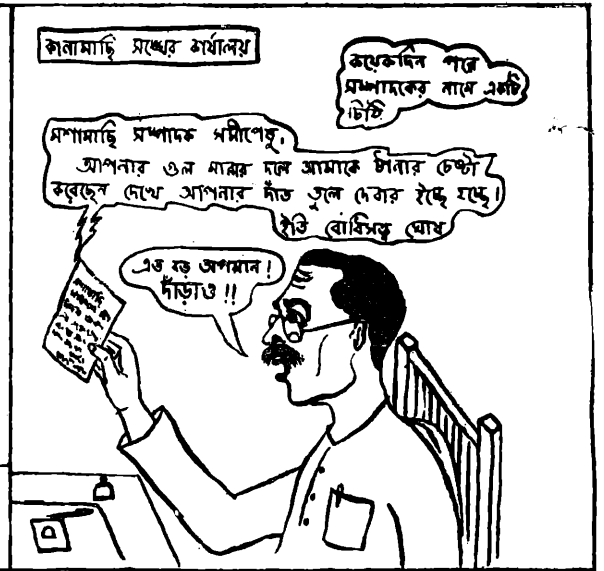 কানামাছি সঙ্ঘের কার্যালয়
কয়েকদিন পরে
সম্পাদকের নামে একটি
চিঠি
মশামাছি সম্পাদক সমীপেষু,
আপনার গুল মারার দলে আমাকে টানার চেষ্টা
করেছেন দেখে আপনার দাঁত তুলে দেবার ইচ্ছে হচ্ছে।
ইতি বোধিসত্ত্ব ঘোষ
এত বড় অপমান!
দাঁড়াও!!